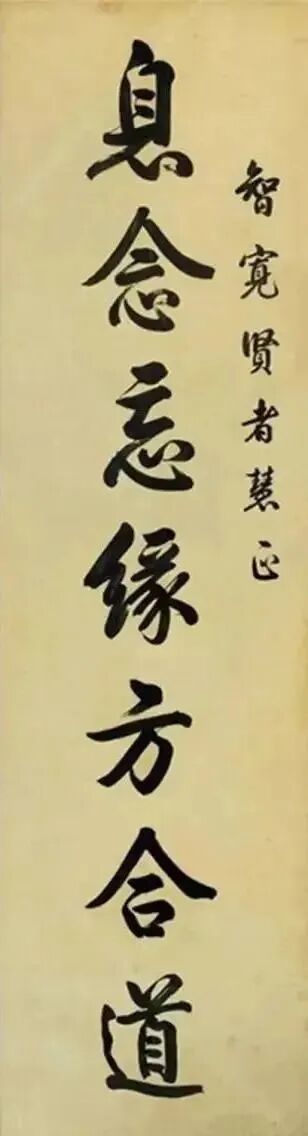 智寬賢者慧正
息念忘緣方合道